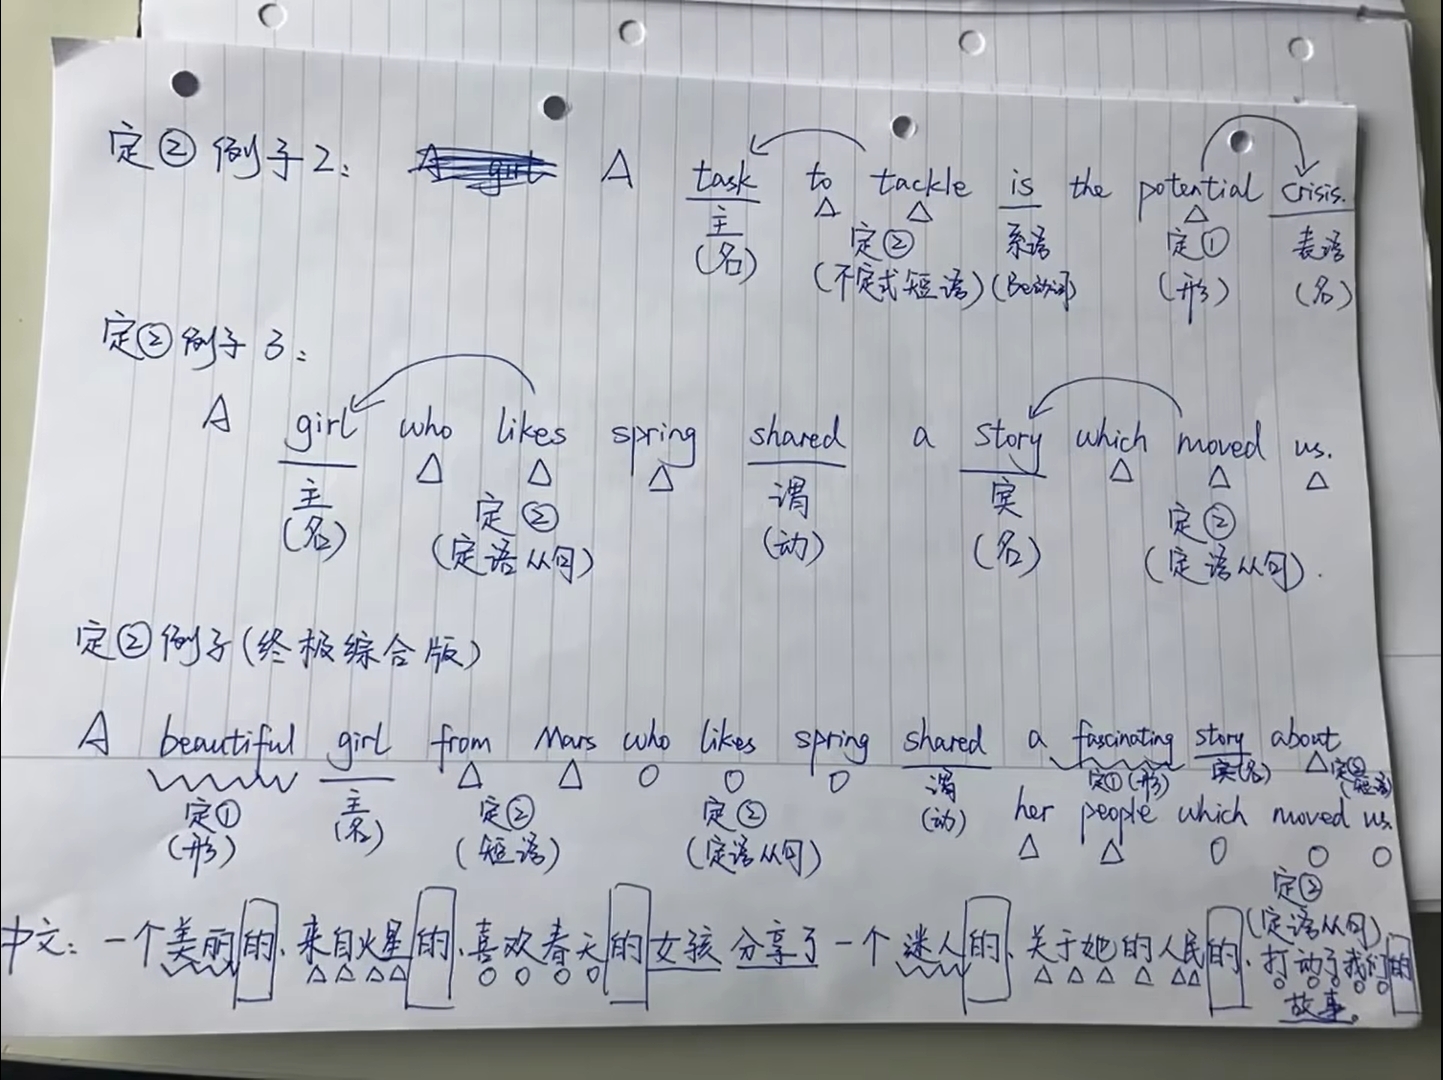 定② 例子2: A task to tackle is the potential crisis.
主 定② 系语 定① 表语
(名) (不定式短语) (Be动词) (形) (名)
定② 例子3:
A girl who likes spring shared a story which moved us.
主 定② 谓 宾 定②
(名) (定语从句) (动) (名) (定语从句).
定②例子(终极综合版)
A beautiful girl from Mars who likes spring shared a fascinating story about
定① 主 定② 定② 谓 定①(形) 宾(名) 定②
(形) (名) (短语) (定语从句) (动) (短语)
her people which moved us.
定②
(定语从句)
中文: 一个美丽的、来自火星的、喜欢春天的女孩分享了一个迷人的、关于她的人民的、打动了我们的
故事。